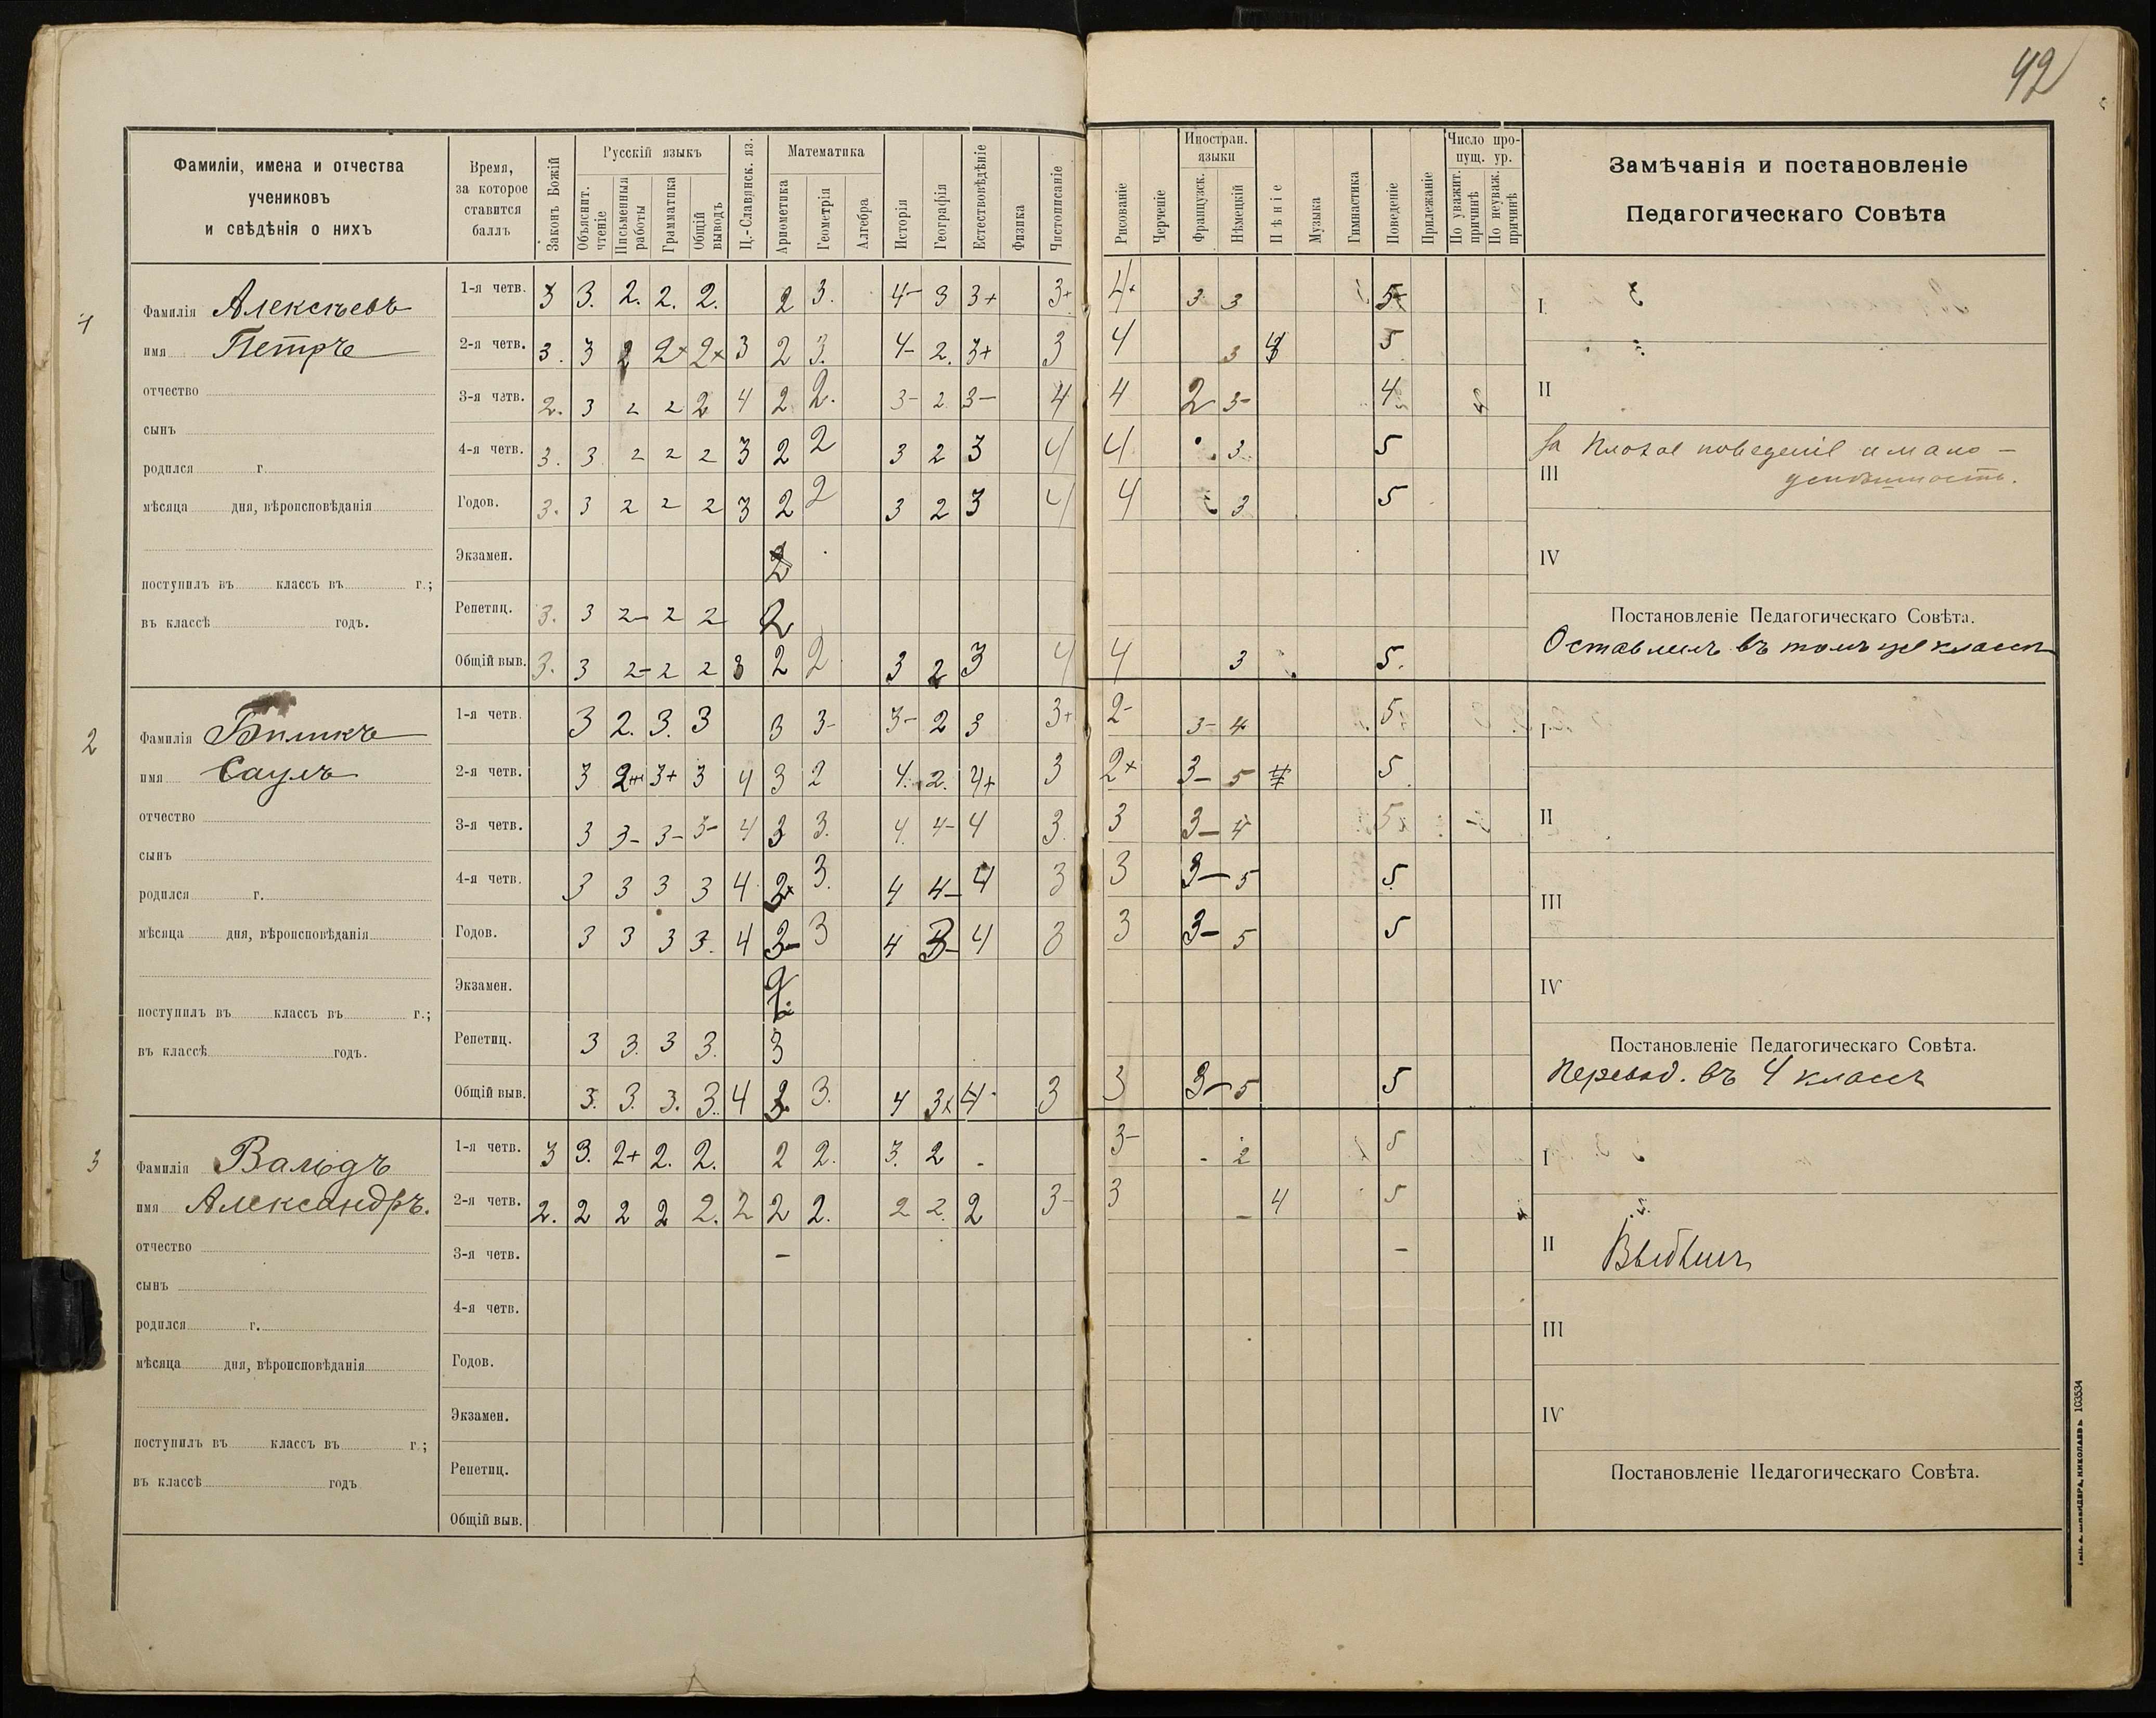 42
Фамиліи, имена и отчества
учениковъ
и свѣдѣнія о нихъ
Время,
за которое
ставится
баллъ
Законъ Божій
Русскій языкъ
Объяснит.
чтеніе
Письменныя
работы
Грамматика
Общій
выводъ
Ц.-Славянск. яз.
Математика
Ариѳметика
Геометрія
Алгебра
Исторія
Географія
Естествовѣдѣніе
Физика
Чистописаніе
Рисованіе
Черченіе
Иностран.
языки
Французск.
Нѣмецкій
Пѣніе
Музыка
Гимнастика
Поведеніе
Прилежаніе
Число про-
пущ. ур.
По уважит.
причинѣ
По неуваж.
причинѣ
Замѣчанія и постановленіе
Педагогическаго Совѣта
1
Фамилія Алексѣевъ
имя Петръ
отчество
сынъ
родился г.
мѣсяца дня, вѣроисповѣданія
поступилъ въ классъ въ г.;
въ классѣ годъ.
1-я четв. 3 3. 2. 2. 2. 2 3. 4- 3 3+ 3+ 4+ 3 3 5 I
2-я четв. 3. 3 2 2+ 2+ 3 2 3. 4- 2. 3+ 3 4 3 4 5
3-я четв. 2. 3 2 2 2 4 2 2. 3- 2 3- 4 4 2 3- 4 II
4-я четв. 3. 3 2 2 2 3 2 2 3 2 3 4 4 3 5
За плохое поведеніе и мало-
III успѣшность.
Годов. 3. 3 2 2 2 3 2 2 3 2 3 4 4 3 5
Экзамен. 2 IV
Репетиц. 3. 3 2- 2 2 2
Постановленіе Педагогическаго Совѣта.
Общій выв. 3. 3 2- 2 2 3 2 2 3 2 3 4 4 3 5.
Оставленъ въ томъ же классѣ
2
Фамилія Биликъ
имя Саулъ
отчество
сынъ
родился г.
мѣсяца дня, вѣроисповѣданія
поступилъ въ классъ въ г.;
въ классѣ годъ.
1-я четв. 3 2. 3. 3 3 3- 3- 2 3 3+ 2- 3- 4 5 I
2-я четв. 3 2+ 3+ 3 4 3 2 4. 2. 4+ 3 2+ 3- 5 5
3-я четв. 3 3- 3- 3- 4 3 3. 4. 4- 4 3. 3 3- 4 5 II
4-я четв. 3 3 3 3 4 2+ 3. 4 4- 4 3 3 3- 5 5 III
Годов. 3 3 3 3. 4 3- 3 4 3- 4 3 3 3- 5 5
Экзамен. IV
Репетиц. 3 3. 3 3. 3
Постановленіе Педагогическаго Совѣта.
Общій выв. 3. 3. 3. 3. 4 3 3. 4 3+ 4 3 3 3- 5 5
Перевод. въ 4 классъ
3
Фамилія Вальдъ
имя Александръ.
отчество
сынъ
родился г.
мѣсяца дня, вѣроисповѣданія
поступилъ въ классъ въ г.;
въ классѣ годъ
1-я четв. 3 3. 2+ 2. 2. 2 2. 3. 2 - 3- - 2 5 I
2-я четв. 2. 2 2 2 2. 2 2 2. 2 2. 2 3- 3 - 4 5
3-я четв. - - II Выбылъ
4-я четв. III
Годов.
Экзамен. IV
Репетиц.
Постановленіе Педагогическаго Совѣта.
Общій выв.
НИКОЛАЕВЪ 103534